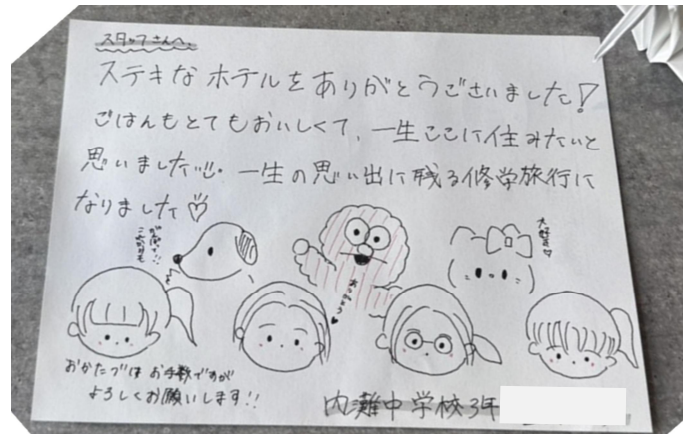 スタッフさんへ
ステキなホテルをありがとうございました!
ごはんもとてもおいしくて、一生ここに住みたいと
思いました!!! 一生の思い出に残る修学旅行に
なりました♡
大好き♡
おかたづけお手数ですが
よろしくお願いします!!
内灘中学校3年